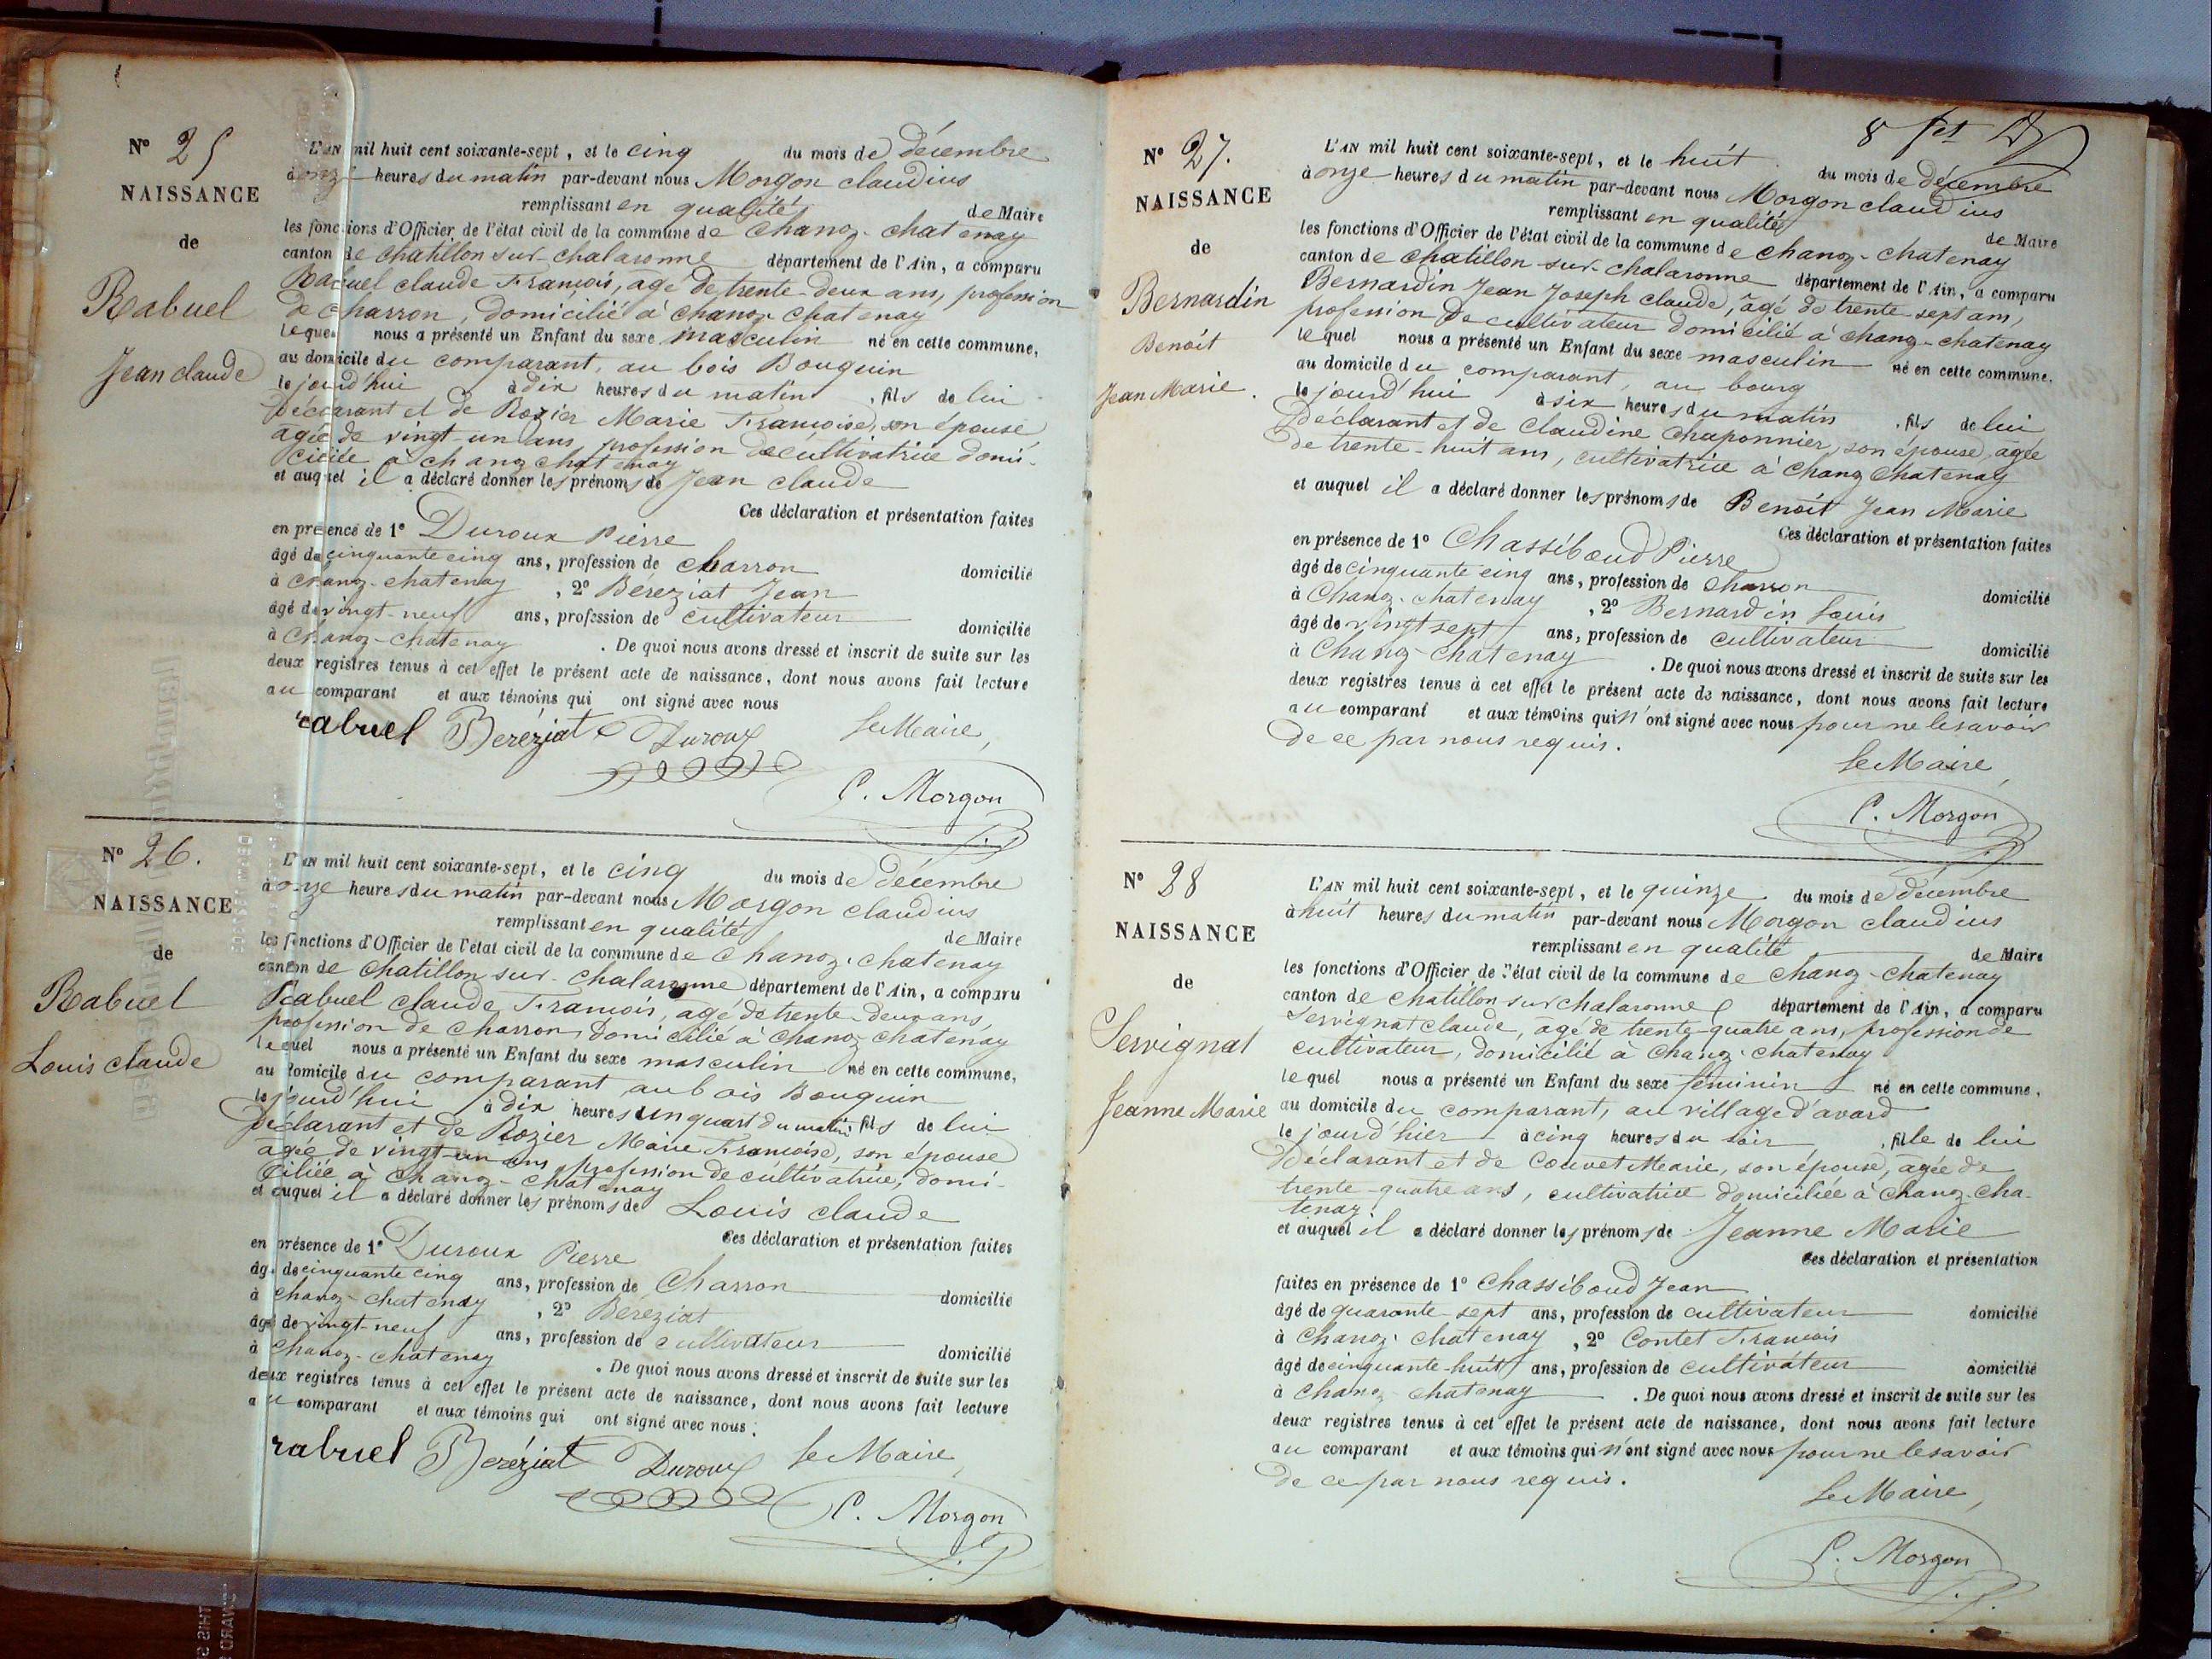 Nº 25
NAISSANCE
de
Rabuel
Jean claude
L'AN mil huit cent soixante-sept, et le cinq du mois de décembre
à onze heures du matin par-devant nous Morgon claudius
remplissant en qualité de Maire
les fonctions d'Officier de l'état civil de la commune de chanoz-chatenay
canton de chatillon sur-chalaronne département de l'Ain, a comparu
Rabuel claude François, âgé de trente-deux ans, profession
de charron, domicilié à chanoz chatenay
lequel nous a présenté un Enfant du sexe masculin né en cette commune,
au domicile du comparant, au bois Bouquin
le jourd'hui à dix heures du matin, fils de lui
Déclarant et de Rozier Marie Françoise, son épouse
âgée de vingt-un ans, profession de cultivatrice domi-
ciliée à chanoz chatenay
et auquel il a déclaré donner les prénoms de Jean claude
Ces déclaration et présentation faites
en présence de 1º Duroux Pierre
âgé de cinquante cinq ans, profession de charron domicilié
à chanoz-chatenay, 2º Béreziat Jean
âgé de vingt-neuf ans, profession de cultivateur domicilié
à chanoz-chatenay. De quoi nous avons dressé et inscrit de suite sur les
deux registres tenus à cet effet le présent acte de naissance, dont nous avons fait lecture
au comparant et aux témoins qui ont signé avec nous
rabuel Beréziat Duroux Le Maire,
C. Morgon
Nº 26.
NAISSANCE
de
Rabuel
Louis claude
L'AN mil huit cent soixante-sept, et le cinq du mois de décembre
à onze heures du matin par-devant nous Morgon claudius
remplissant en qualité de Maire
les fonctions d'Officier de l'état civil de la commune de chanoz-chatenay
canton de chatillon sur-chalaronne département de l'Ain, a comparu
Rabuel claude François, âgé de trente-deux ans,
profession de charron, domicilié à chanoz chatenay
lequel nous a présenté un Enfant du sexe masculin né en cette commune,
au domicile du comparant au bois Bouquin
le jourd'hui à dix heures un quart du matin fils de lui
Déclarant et de Rozier Marie Françoise, son épouse
âgée de vingt-un ans, profession de cultivatrice, domi-
ciliée à chanoz-chatenay
et auquel il a déclaré donner les prénoms de Louis claude
Ces déclaration et présentation faites
en présence de 1º Duroux Pierre
âgé de cinquante cinq ans, profession de Charron domicilié
à chanoz-chatenay, 2º Béréziat
âgé de vingt-neuf ans, profession de cultivateur domicilié
à chanoz-chatenay. De quoi nous avons dressé et inscrit de suite sur les
deux registres tenus à cet effet le présent acte de naissance, dont nous avons fait lecture
au comparant et aux témoins qui ont signé avec nous.
rabuel Beréziat Duroux Le Maire,
C. Morgon
Nº 27.
NAISSANCE
de
Bernardin
Benoit
Jean Marie.
L'AN mil huit cent soixante-sept, et le huit du mois de décembre
à onze heures du matin par-devant nous Morgon claudius
remplissant en qualité de Maire
les fonctions d'Officier de l'état civil de la commune de chanoz-chatenay
canton de chatillon sur-chalaronne département de l'Ain, a comparu
Bernardin Jean Joseph claude, âgé de trente sept ans,
profession de cultivateur domicilié à chanoz-chatenay
lequel nous a présenté un Enfant du sexe masculin né en cette commune.
au domicile du comparant, au bourg
le jourd'hui à six heures du matin, fils de lui
Déclarant et de Claudine Chaponnier, son épouse, âgée
de trente-huit ans, cultivatrice à chanoz chatenay
et auquel il a déclaré donner les prénoms de Benoît Jean Marie
Ces déclaration et présentation faites
en présence de 1º Chassiboud Pierre
âgé de cinquante cinq ans, profession de charron domicilié
à Chanoz-chatenay, 2º Bernardin Louis
âgé de vingt sept ans, profession de cultivateur domicilié
à Chanoz-chatenay. De quoi nous avons dressé et inscrit de suite sur les
deux registres tenus à cet effet le présent acte de naissance, dont nous avons fait lecture
au comparant et aux témoins qui n'ont signé avec nous pour ne le savoir
de ce par nous requis.
Le Maire,
C. Morgon
Nº 28
NAISSANCE
de
Servignat
Jeanne Marie
L'AN mil huit cent soixante-sept, et le quinze du mois de décembre
à huit heures du matin par-devant nous Morgon claudius
remplissant en qualité de Maire
les fonctions d'Officier de l'état civil de la commune de chanoz-chatenay
canton de chatillon sur chalaronne département de l'Ain, a comparu
Servignat claude, âgé de trente-quatre ans, profession de
cultivateur, domicilié à chanoz-chatenay
lequel nous a présenté un Enfant du sexe féminin né en cette commune,
au domicile du comparant, au village d'avard
le jourd'hier à cinq heures du soir, fille de lui
Déclarant et de Couvet Marie, son épouse, âgée de
trente-quatre ans, cultivatrice domiciliée à chanoz-cha-
tenay
et auquel il a déclaré donner les prénoms de Jeanne Marie
Ces déclaration et présentation
faites en présence de 1º Chassiboud Jean
âgé de quarante-sept ans, profession de cultivateur domicilié
à chanoz-chatenay, 2º Contet François
âgé de cinquante-huit ans, profession de cultivateur domicilié
à chanoz-chatenay. De quoi nous avons dressé et inscrit de suite sur les
deux registres tenus à cet effet le présent acte de naissance, dont nous avons fait lecture
au comparant et aux témoins qui n'ont signé avec nous pour ne le savoir
de ce par nous requis.
Le Maire,
C. Morgon